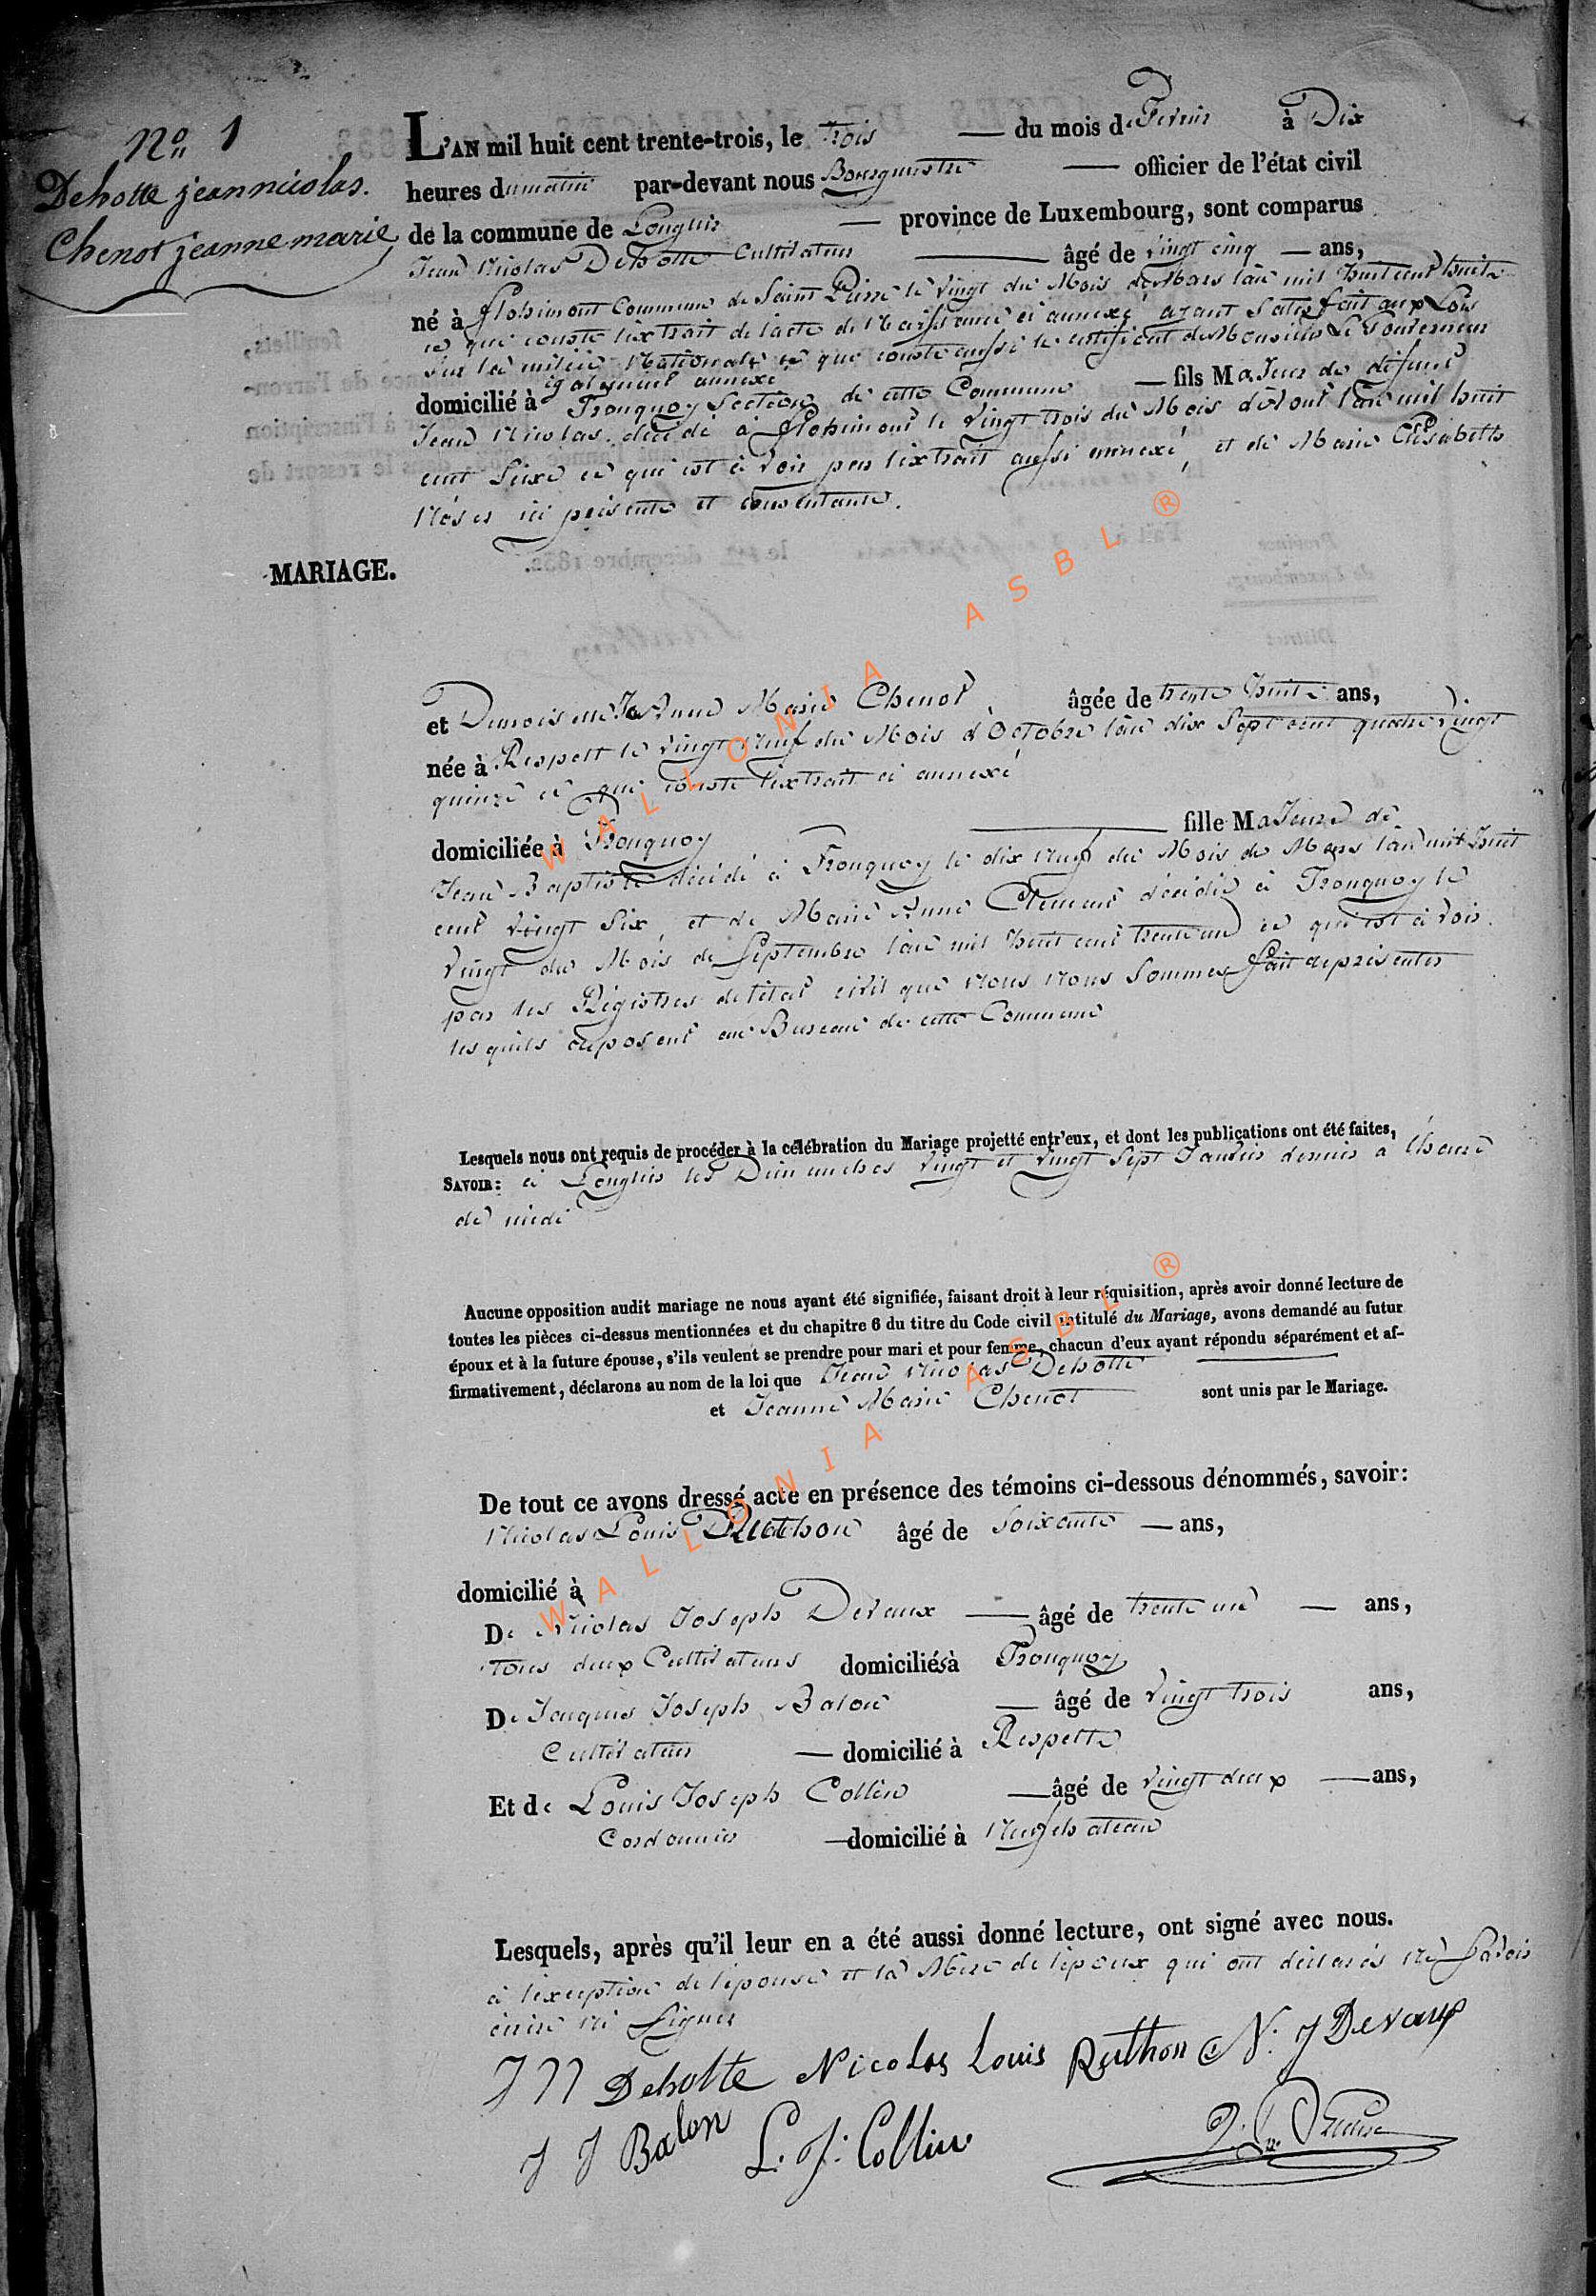 No 1
Dehotte jean nicolas.
Chenot jeanne marie
MARIAGE.
L'AN mil huit cent trente-trois, le trois — du mois de Fevrier à Dix
heures du matin par-devant nous Bourgmestre — officier de l'état civil
de la commune de Longlier — province de Luxembourg, sont comparus
Jean Nicolas Dehotte Cultivateur — âgé de vingt cinq — ans,
né à flohimont Commune de Saint Pierre le vingt du Mois de Mars l'an mil huit cent huit
ce que conste l'extrait de l'acte de Naissance ci annexé ayant satisfait aux Lois
sur la milice Nationale ce que conste aussi le certificat de Monsieur Le Gouverneur
egalement annexé
domicilié à Tronquoy Section de cette Commune — fils Majeur de défunt
Jean Nicolas décédé à flohimont le vingt trois du Mois d'Aout l'an mil huit
cent Seize ce qui est à voir par l'extrait aussi annexé, et de Marie Elisabeth
Noser ici présente et consentante.
et Demoiselle Jeanne Marie Chenot âgée de trente huit ans,
née à Respelt le vingt neuf du Mois d'Octobre l'an dix sept cent quatre vingt
quinze ce que conste l'extrait ci annexé
domiciliée à Tronquoy — fille Majeure de
Jean Baptiste décédé à Tronquoy le dix neuf du Mois de Mars l'an mil huit
cent vingt Six, et de Marie Anne Clement décédée à Tronquoy le
vingt du Mois de Septembre l'an mil huit cent trente un ce qui est à voir
par les Régistres de l'état civil que nous nous sommes fait représenter
lesquels déposent au Bureau de cette Commune
Lesquels nous ont requis de procéder à la célébration du Mariage projetté entr'eux, et dont les publications ont été faites,
SAVOIR: à Longlier les Dimanches vingt et vingt sept Janvier dernier à l'heure
de midi
Aucune opposition audit mariage ne nous ayant été signifiée, faisant droit à leur réquisition, après avoir donné lecture de
toutes les pièces ci-dessus mentionnées et du chapitre 6 du titre du Code civil intitulé du Mariage, avons demandé au futur
époux et à la future épouse, s'ils veulent se prendre pour mari et pour femme, chacun d'eux ayant répondu séparément et af-
firmativement, déclarons au nom de la loi que Jean Nicolas Dehotte —
et Jeanne Marie Chenot sont unis par le Mariage.
De tout ce avons dressé acte en présence des témoins ci-dessous dénommés, savoir:
Nicolas Louis Ruthon âgé de soixante — ans,
domicilié à
De Nicolas Joseph Devaux — âgé de trente un — ans,
tous deux Cultivateurs domiciliés à Tronquoy
De Jacques Joseph Balon — âgé de vingt trois ans,
Cultivateur — domicilié à Respelt
Et de Louis Joseph Collin — âgé de vingt deux — ans,
Cordonnier — domicilié à Neufchateau
Lesquels, après qu'il leur en a été aussi donné lecture, ont signé avec nous.
à l'exception de l'épouse et la Mère de l'époux qui ont déclarés ne Savoir
écrire ni Signer
J N Dehotte Nicolas Louis Ruthon N. J Devaux
J J Balon L. J. Collin
WALLONIA ASBL ®
WALLONIA ASBL ®